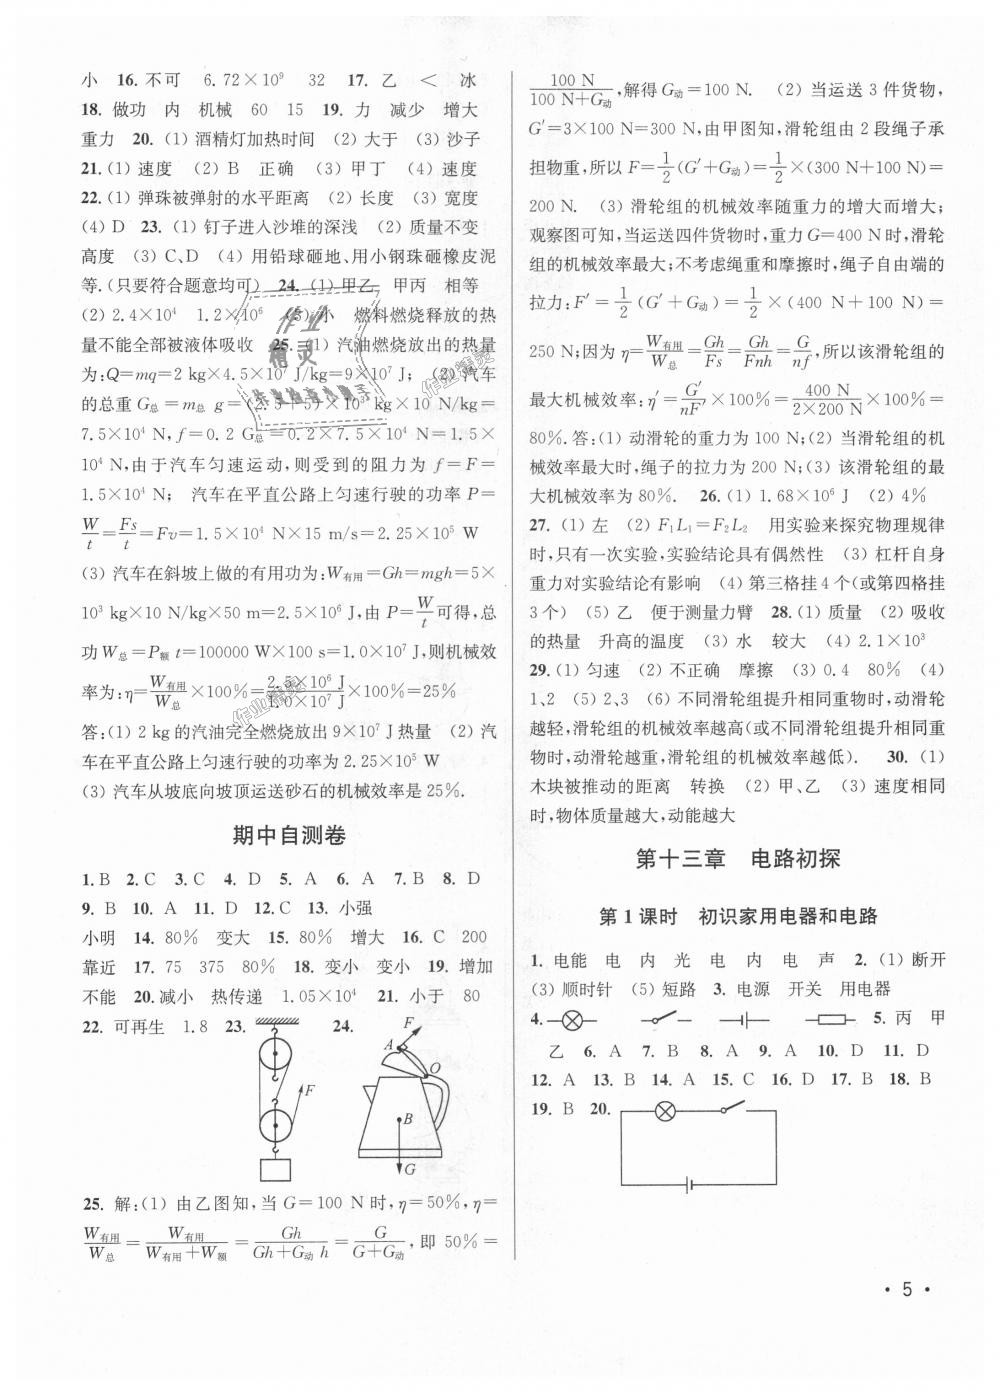 小 16. 不可 6.72×10⁹ 32 17. 乙 < 冰
18. 做功 内 机械 60 15 19. 力 减少 增大
重力 20. (1) 酒精灯加热时间 (2) 大于 (3) 沙子
21. (1) 速度 (2) B 正确 (3) 甲丁 (4) 速度
22. (1) 弹珠被弹射的水平距离 (2) 长度 (3) 宽度
(4) D 23. (1) 钉子进入沙堆的深浅 (2) 质量不变
高度 (3) C、D (4) 用铅球砸地、用小钢珠砸橡皮泥
等.(只要符合题意均可) 24. (1) 甲乙 甲丙 相等
(2) 2.4×10⁴ 1.2×10⁶ (3) 小 燃料燃烧释放的热
量不能全部被液体吸收 25. (1) 汽油燃烧放出的热量
为:Q=mq=2 kg×4.5×10⁷ J/kg=9×10⁷ J; (2) 汽车
的总重 G总=m总 g=(2.5+5)×10³ kg×10 N/kg=
7.5×10⁴ N,f=0.2 G总=0.2×7.5×10⁴ N=1.5×
10⁴ N,由于汽车匀速运动,则受到的阻力为 f=F=
1.5×10⁴ N; 汽车在平直公路上匀速行驶的功率 P=
W/t=Fs/t=Fv=1.5×10⁴ N×15 m/s=2.25×10⁵ W
(3) 汽车在斜坡上做的有用功为:W有用=Gh=mgh=5×
10³ kg×10 N/kg×50 m=2.5×10⁶ J,由 P=W/t可得,总
功W总=P额 t=100000 W×100 s=1.0×10⁷ J,则机械效
率为:η=W有用/W总×100%=2.5×10⁶ J/1.0×10⁷ J×100%=25%
答:(1) 2 kg的汽油完全燃烧放出 9×10⁷ J热量 (2) 汽
车在平直公路上匀速行驶的功率为 2.25×10⁵ W
(3) 汽车从坡底向坡顶运送砂石的机械效率是25%.
期中自测卷
1. B 2. C 3. C 4. D 5. A 6. A 7. B 8. D
9. B 10. A 11. D 12. C 13. 小强
小明 14. 80% 变大 15. 80% 增大 16. C 200
靠近 17. 75 375 80% 18. 变小 变小 19. 增加
不能 20. 减小 热传递 1.05×10⁴ 21. 小于 80
22. 可再生 1.8 23. 24.
F
A
O
F
B
G
25. 解:(1) 由乙图知,当 G=100 N 时,η=50%,η=
W有用/W总=W有用/(W有用+W额)=Gh/(Gh+G动 h)=G/(G+G动),即 50%=
100 N/(100 N+G动),解得G动=100 N. (2) 当运送 3 件货物,
G′=3×100 N=300 N,由甲图知,滑轮组由 2 段绳子承
担物重,所以 F=1/2(G′+G动)=1/2×(300 N+100 N)=
200 N. (3) 滑轮组的机械效率随重力的增大而增大;
观察图可知,当运送四件货物时,重力 G=400 N 时,滑轮
组的机械效率最大;不考虑绳重和摩擦时,绳子自由端的
拉力:F′=1/2(G′+G动)=1/2×(400 N+100 N)=
250 N;因为η=W有用/W总=Gh/Fs=Gh/Fnh=G/nf,所以该滑轮组的
最大机械效率:η′=G′/nF′×100%=400 N/(2×200 N)×100%=
80%.答:(1) 动滑轮的重力为 100 N;(2) 当滑轮组的机
械效率最大时,绳子的拉力为 200 N;(3) 该滑轮组的最
大机械效率为 80%. 26. (1) 1.68×10⁶ J (2) 4%
27. (1) 左 (2) F₁L₁=F₂L₂ 用实验来探究物理规律
时,只有一次实验,实验结论具有偶然性 (3) 杠杆自身
重力对实验结论有影响 (4) 第三格挂4个(或第四格挂
3个) (5) 乙 便于测量力臂 28. (1) 质量 (2) 吸收
的热量 升高的温度 (3) 水 较大 (4) 2.1×10³
29. (1) 匀速 (2) 不正确 摩擦 (3) 0.4 80% (4)
1、2 (5) 2、3 (6) 不同滑轮组提升相同重物时,动滑轮
越轻,滑轮组的机械效率越高(或不同滑轮组提升相同重
物时,动滑轮越重,滑轮组的机械效率越低). 30. (1)
木块被推动的距离 转换 (2) 甲、乙 (3) 速度相同
时,物体质量越大,动能越大
第十三章 电路初探
第1课时 初识家用电器和电路
1. 电能 电 内 光 电 内 电 声 2. (1) 断开
(3) 顺时针 (5) 短路 3. 电源 开关 用电器
4. 5. 丙 甲
乙 6. A 7. B 8. A 9. A 10. D 11. D
12. A 13. B 14. A 15. C 16. D 17. B 18. B
19. B 20.
• 5 •
作业
精灵
作业精灵
作业精灵